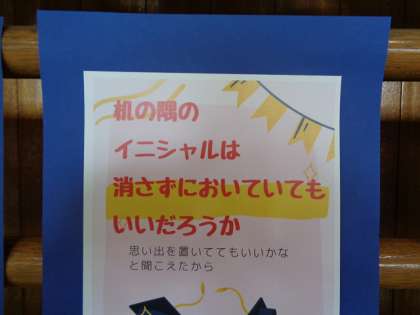 机の隅の
イニシャルは
消さずにおいていても
いいだろうか
思い出を置いててもいいかな
と聞こえたから